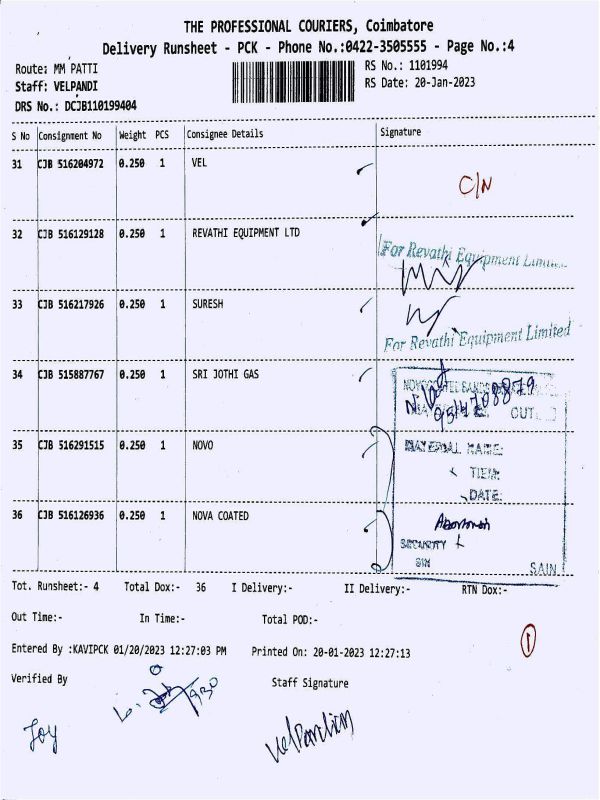 THE PROFESSIONAL COURIERS, Coimbatore
Delivery Runsheet - PCK - Phone No.:0422-3505555 - Page No.:4
Route: MM PATTI
RS No.: 1101994
Staff: VELPANDI
RS Date: 20-Jan-2023
DRS No.: DCJB110199404
S No Consignment No Weight PCS Consignee Details Signature
31 CJB 516204972 0.250 1 VEL
C/N
32 CJB 516129128 0.250 1 REVATHI EQUIPMENT LTD
For Revathi Equipment Limited
33 CJB 516217926 0.250 1 SURESH
For Revathi Equipment Limited
34 CJB 515887767 0.250 1 SRI JOTHI GAS
9514708879
OUT
35 CJB 516291515 0.250 1 NOVO
MATERIAL NAME:
TIEM:
DATE:
36 CJB 516126936 0.250 1 NOVA COATED
SECURITY
SIN
SAIN.
Tot. Runsheet:- 4 Total Dox:- 36 I Delivery:- II Delivery:- RTN Dox:-
Out Time:- In Time:- Total POD:-
1
Entered By :KAVIPCK 01/20/2023 12:27:03 PM Printed On: 20-01-2023 12:27:13
Verified By
Staff Signature
Joy
Velpandian